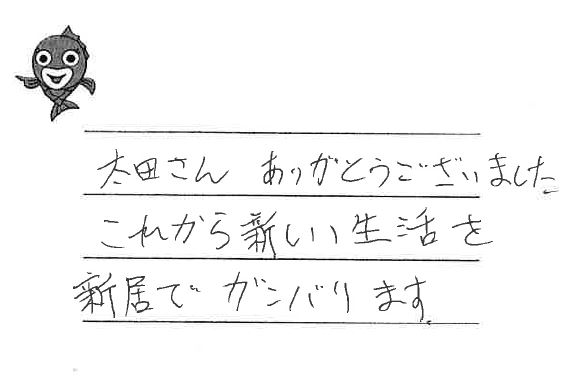 太田さん ありがとうございました
これから新しい生活を
新居で ガンバリ ます.